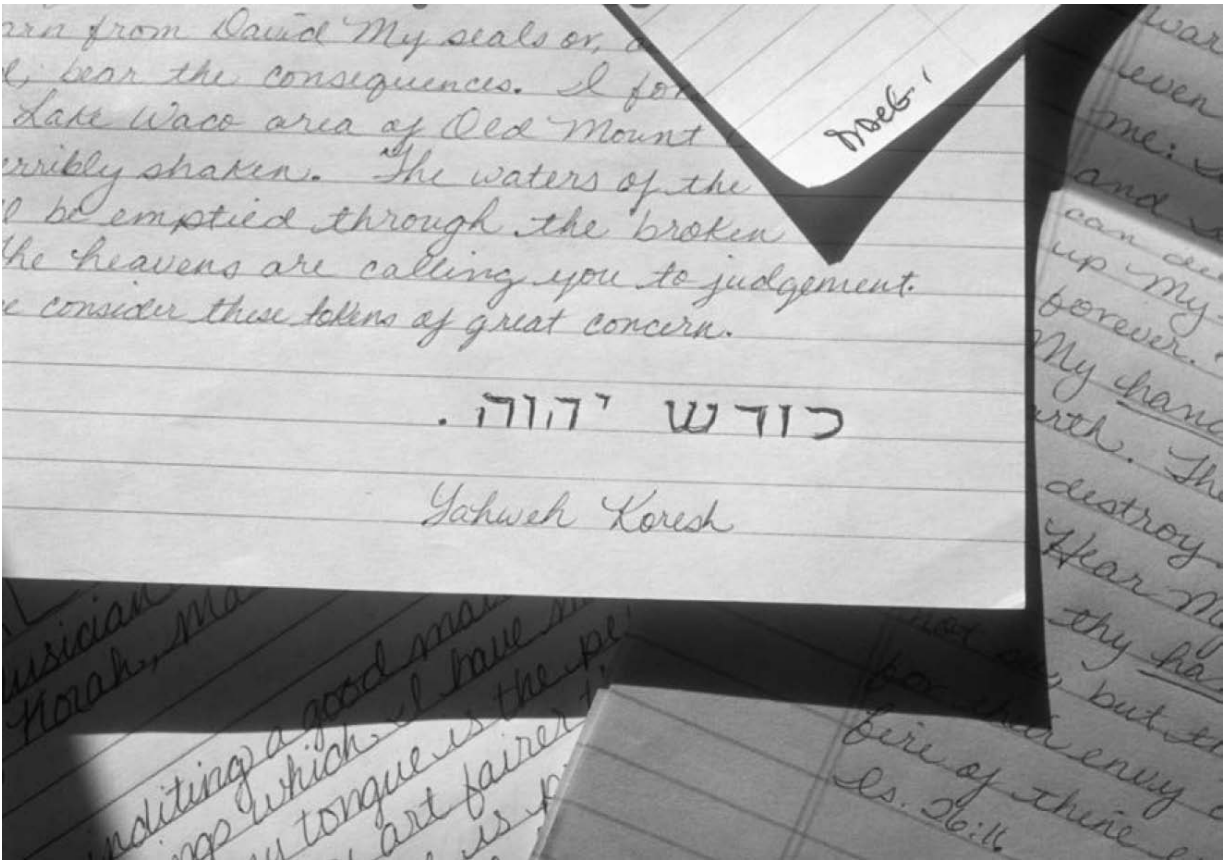 arn from David My seals or,
bear the consequences. I
Lake Waco area of Old Mount
erribly shaken. The waters of the
be emptied through the broken
the heavens are calling you to judgement.
consider these tokens of great concern.
כורש יהוה.
Yahweh Koresh
war
even
me:
and
can
up My
forever.
My hand
arth. The
destroy.
Hear My
thy ha
but th
for their envy
fire of thine
Is. 26:11
usician
Korah,
inditing a good mat
ngs which I have
my tongue is the pe
art fairer
is p